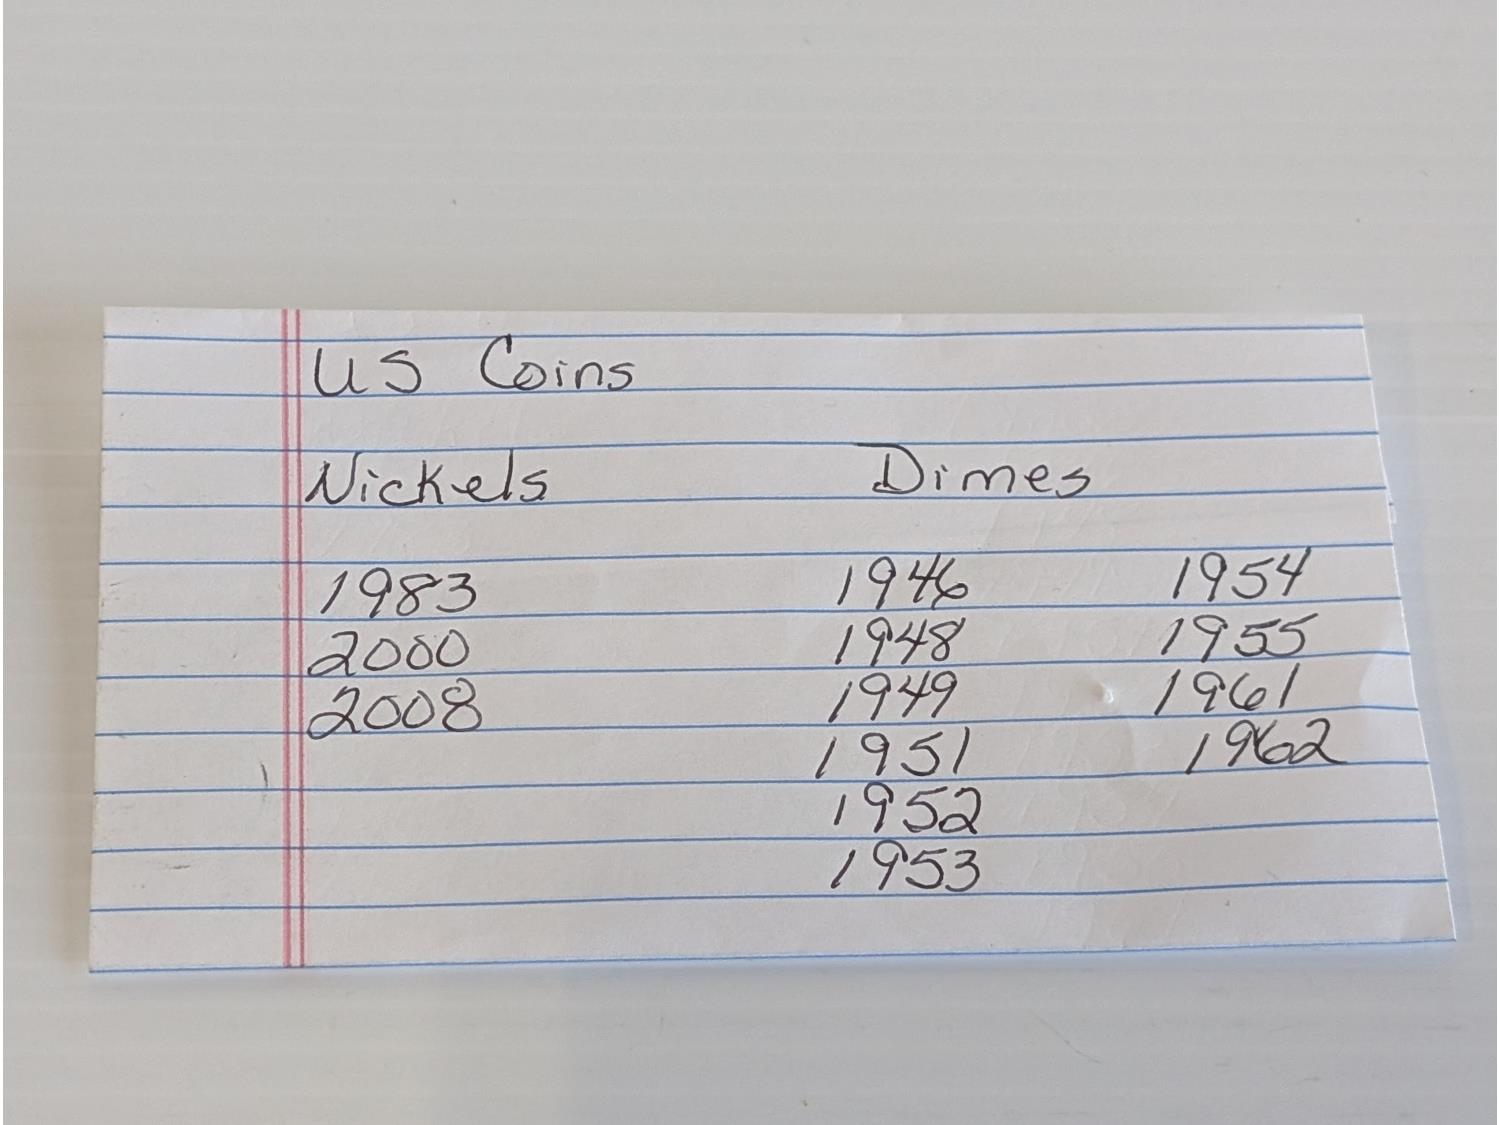 US Coins
Nickels Dimes
1983 1946 1954
2000 1948 1955
2008 1949 1961
1951 1962
1952
1953